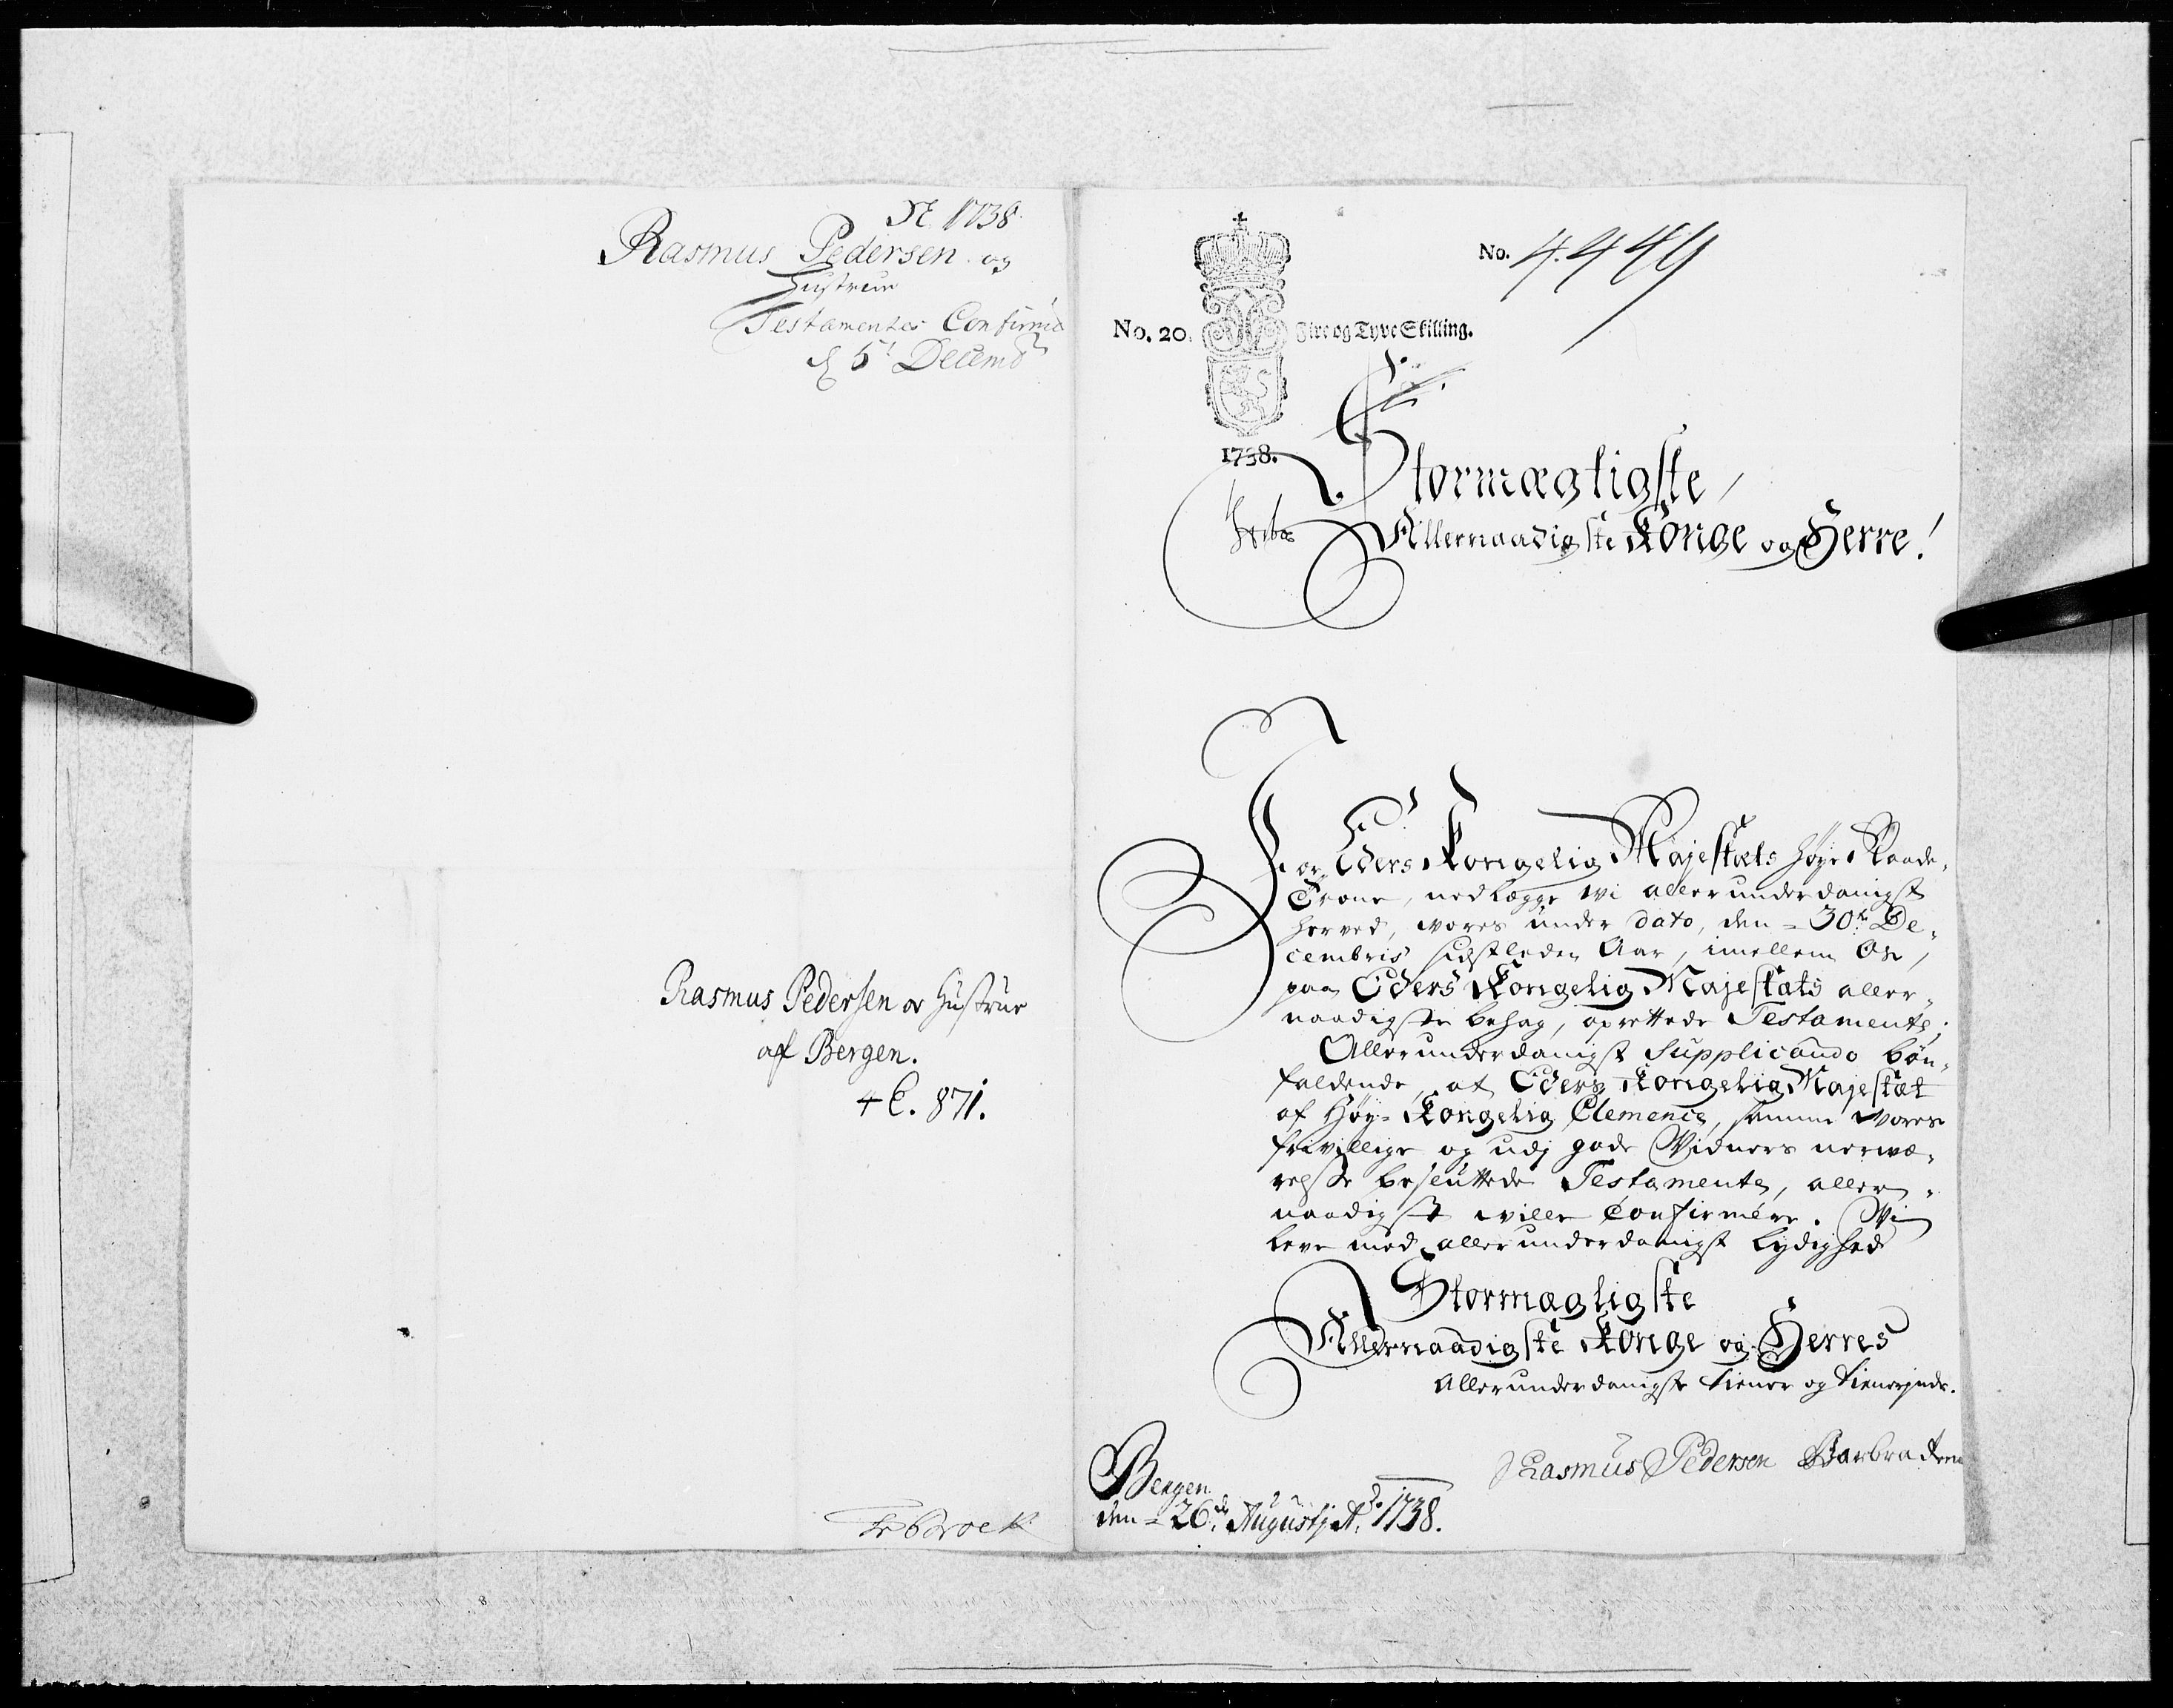 N. 1738
Rasmus Pedersen og
Hustrue
Testamentes Confirma
d 5t Decemb
Rasmus Pedersen og Hustrue
af Bergen.
4 C. 871.
No. 4449
No. 20. Fire og Tyve Skilling.
1738.
Stormægtigste
Allernaadigste Konge og Herre!
For Eders Kongelig Majestæts høye Naade-
Trone, nedlægge wi allerunderdanigst
herved, wores under dato, den 30te De-
cembris sidstleden Aar, imellem Os,
paa Eders Kongelig Majestæts aller-
naadigste behag, oprettede Testamente;
Allerunderdanigst Supplicando bøn-
faldende, at Eders Kongelig Majestæt
af Høy-Kongelig Clemence, samme wores
frivillige og udj gode Widners nerwæ-
relse besluttede Testamente, aller-
naadigst wille Confirmere. Wi
leve med allerunderdanigst lydighed
Stormægtigste
Allernaadigste Konge og Herres
Allerunderdanigste tiener og tienerinde.
Rasmus Pedersen Barbra
Bergen
den 26de Augustj Ao. 1738.